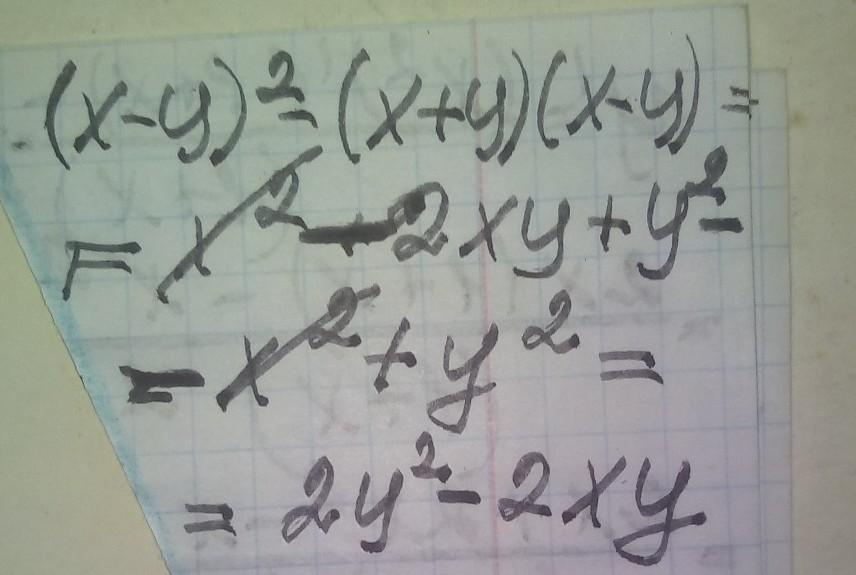 (x-y)²-(x+y)(x-y)=
=x²-2xy+y²-
-x²+y²=
=2y²-2xy